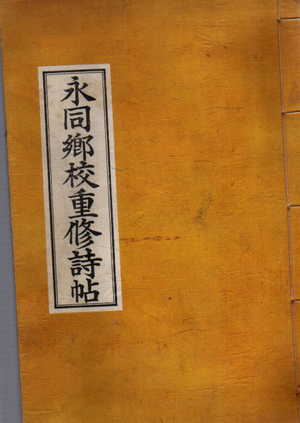 永同鄉校重修詩帖